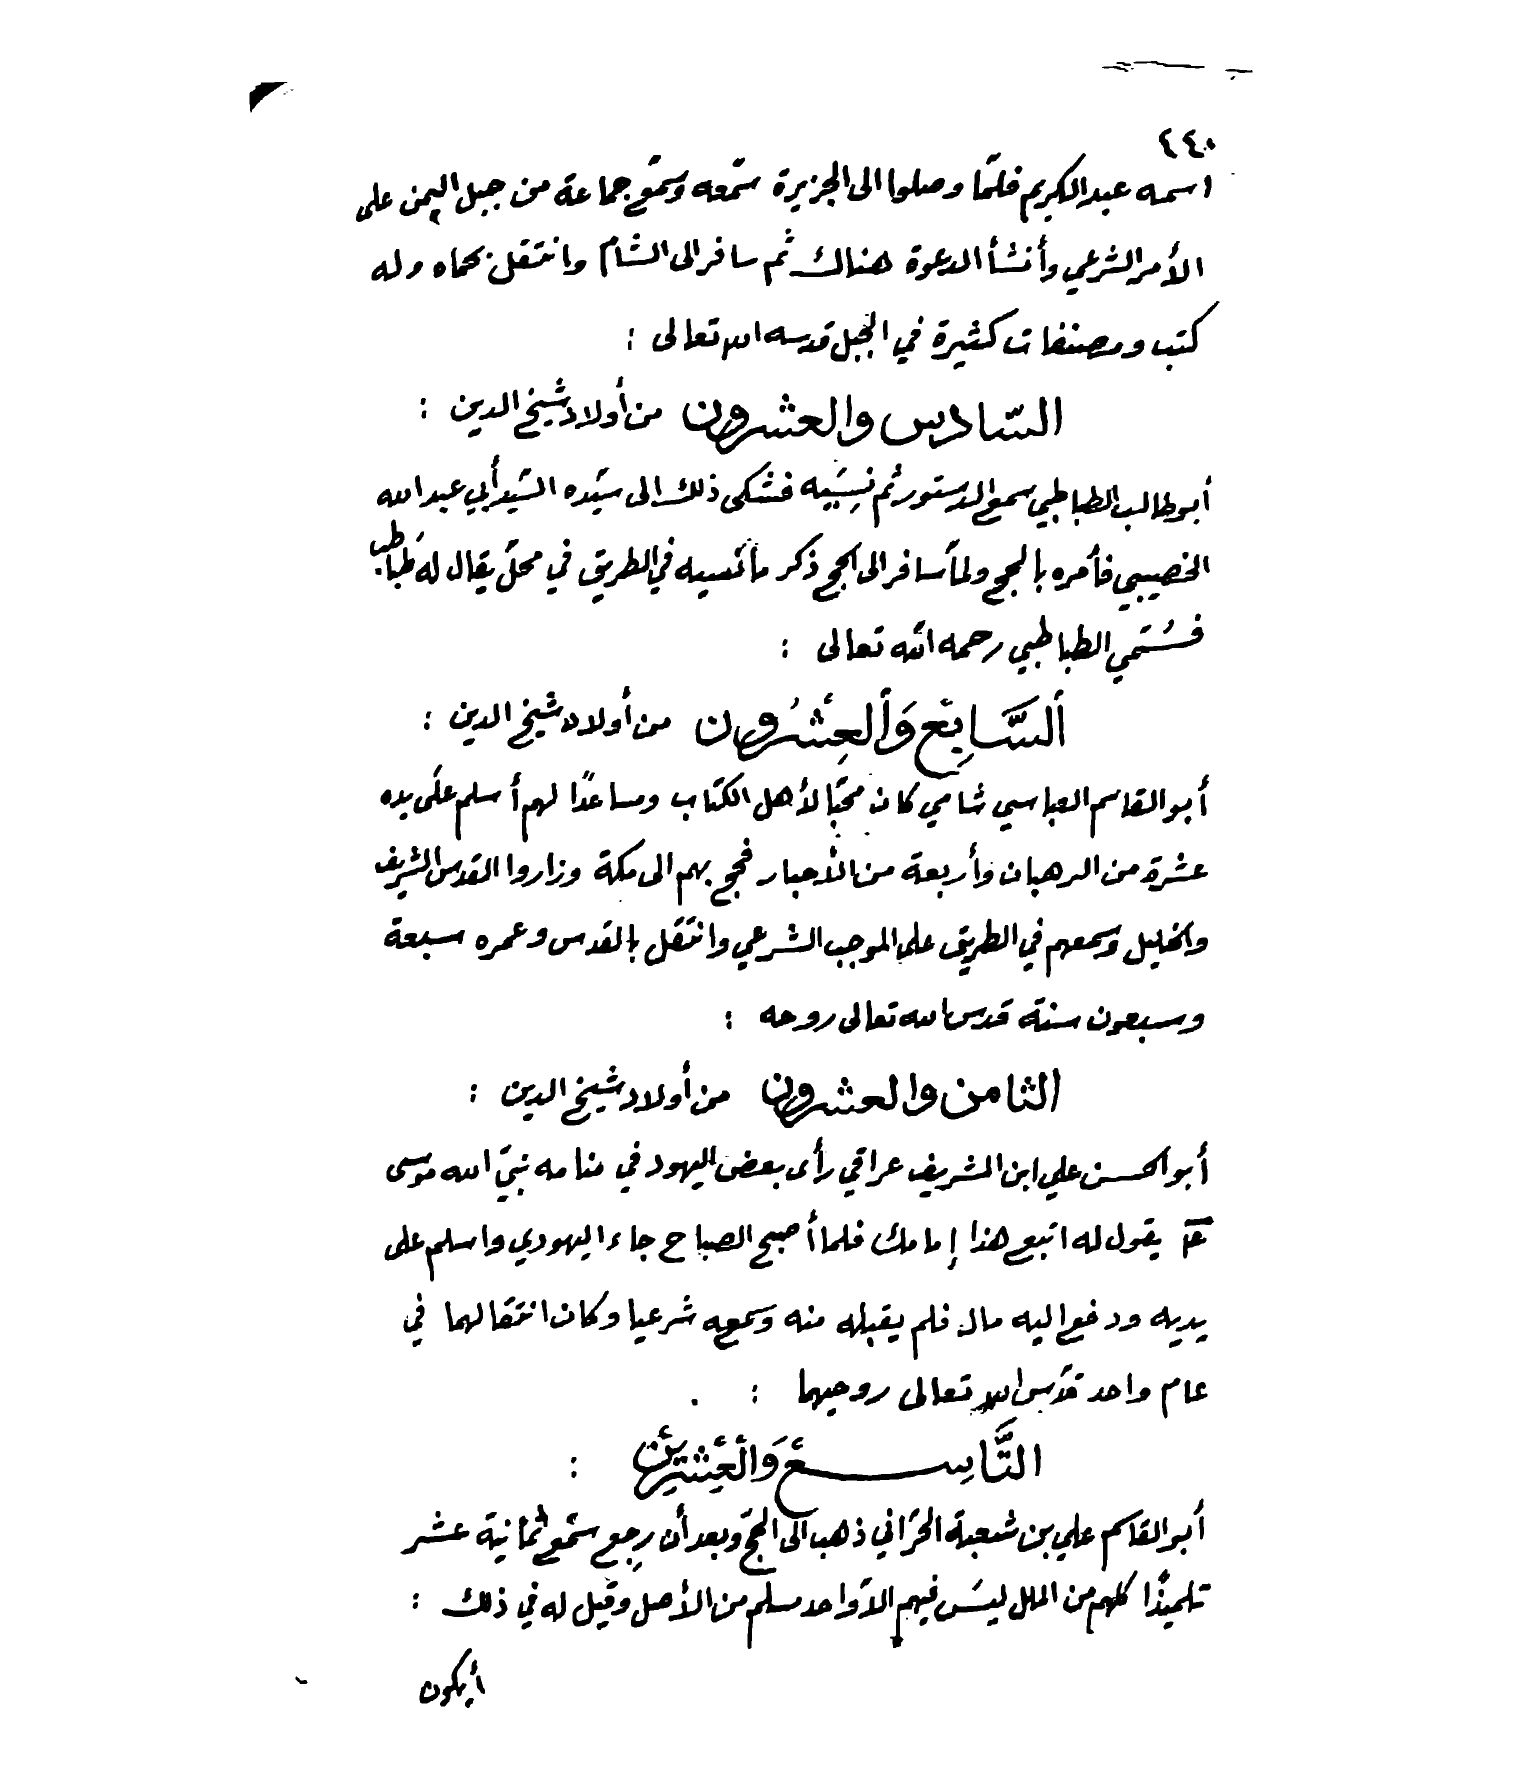 ٤٤٠
اسمه عبد الكريم فلمّا وصلوا الى الجزيرة سمّعه وسمّع جماعة من جبل اليمن على
الأمر الشرعي وأنشأ الدعوة هناك ثم سافر الى الشام وانتقل بحماه وله
كتب ومصنفات كثيرة في الجبل قدسه الله تعالى :
السّادس والعشرون من أولاد شيخ الدين :
أبو طالب الطباطبي سمع الدستور ثم نسيه فشكى ذلك الى سيّده السّيد أبي عبد الله
الخصيبي فأمره بالحج ولما سافر الى الحج ذكر ما نسيه في الطريق في محلّ يقال له طباطب
فسُمّي الطباطبي رحمه الله تعالى :
ألسَّابِع وَألعِشْرُون من أولاد شيخ الدين :
أبو القاسم العباسي شامي كان محبّا لأهل الكتاب ومساعدًا لهم أسلم على يده
عشرة من الرهبان وأربعة من الأحبار فحج بهم الى مكة وزاروا القدس الشريف
والخليل وسمعهم في الطريق على الموجب الشرعي وانتقل بالقدس وعمره سبعة
وسبعون سنة قدس الله تعالى روحه :
الثامن والعشرون من أولاد شيخ الدين :
أبو الحسن علي ابن الشريف عراقي رأى بعض اليهود في منامه نبيّ الله موسى
عم يقول له اتبع هذا إمامك فلما أصبح الصباح جاء اليهودي واسلم على
يديه ودفع اليه مال فلم يقبله منه وسمعه شرعيا وكان انتقالهما في
عام واحد قدّس الله تعالى روحيهما :
التَّاسِع وَالْعِشْرِيْن :
أبو القاسم علي بن شعبة الحرّاني ذهب الى الحجّ وبعد أن رجع سمّع ثمانية عشر
تلميذًا كلهم من الملل ليسَ فيهم الاّ واحد مسلم من الأصل وقيل له في ذلك :
أيكون